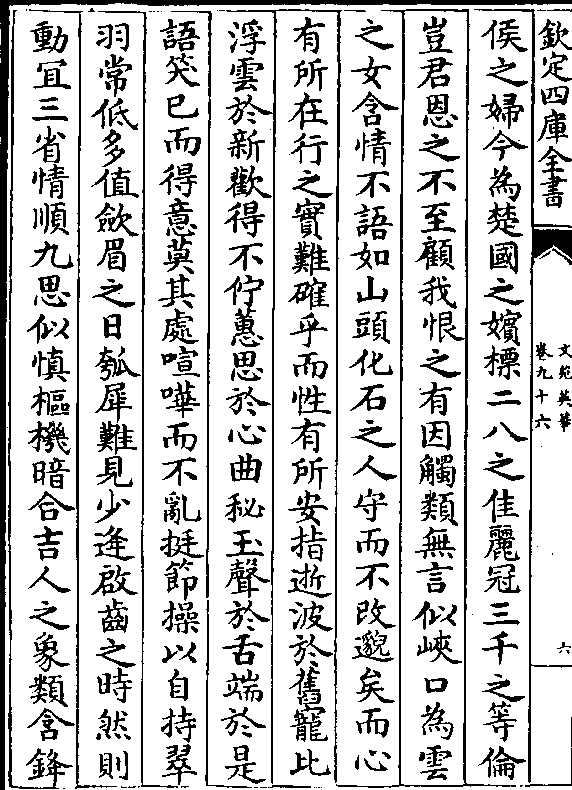 欽定四庫全書
文苑英華
卷九十六
六
侯之婦今為楚國之嬪標二八之佳麗冠三千之等倫
豈君恩之不至顧我恨之有因觸類無言似峽口為雲
之女含情不語如山頭化石之人守而不改邈矣而心
有所在行之實難確乎而性有所安指逝波於舊寵比
浮雲於新歡得不佇蕙思於心曲秘玉聲於舌端於是
語笑已而得意莫其處喧嘩而不亂挺節操以自持翠
羽常低多值斂眉之日瓠犀難見少逢啟齒之時然則
動冝三省情順九思似慎樞機暗合吉人之象類含鋒